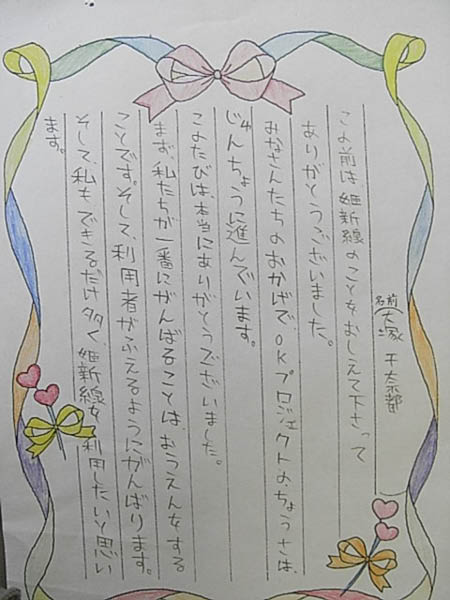 名前(大塚 千奈都)
この前は、姫新線のことをおしえて下さって
ありがとうございました。
みなさんたちのおかげで、OKプロジェクトのちょうさは、
じゅんちょうに進んでいます。
このたびは、本当にありがとうございました。
まず、私たちが一番にがんばることは、おうえんをする
ことです。そして、利用者がふえるようにがんばります。
そして、私もできるだけ多く、姫新線を利用したいと思い
ます。